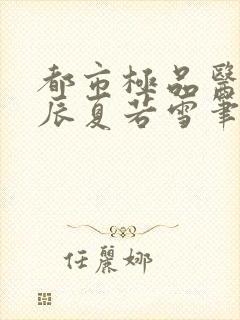 都市極品醫
辰夏若雪筆
任麗娜